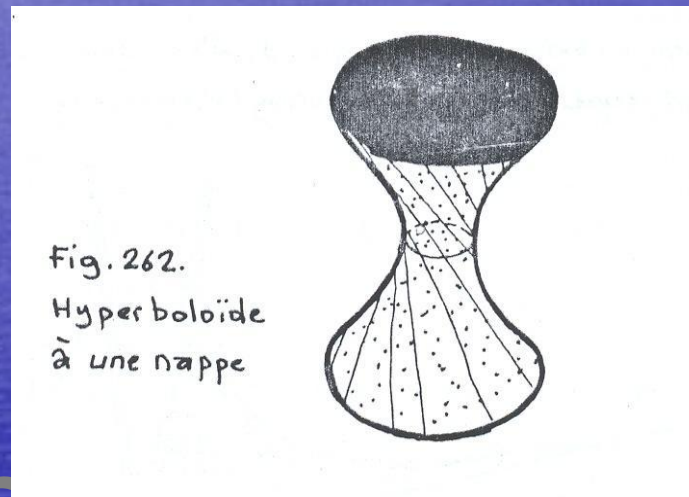 Fig. 262.
Hyperboloïde
à une nappe